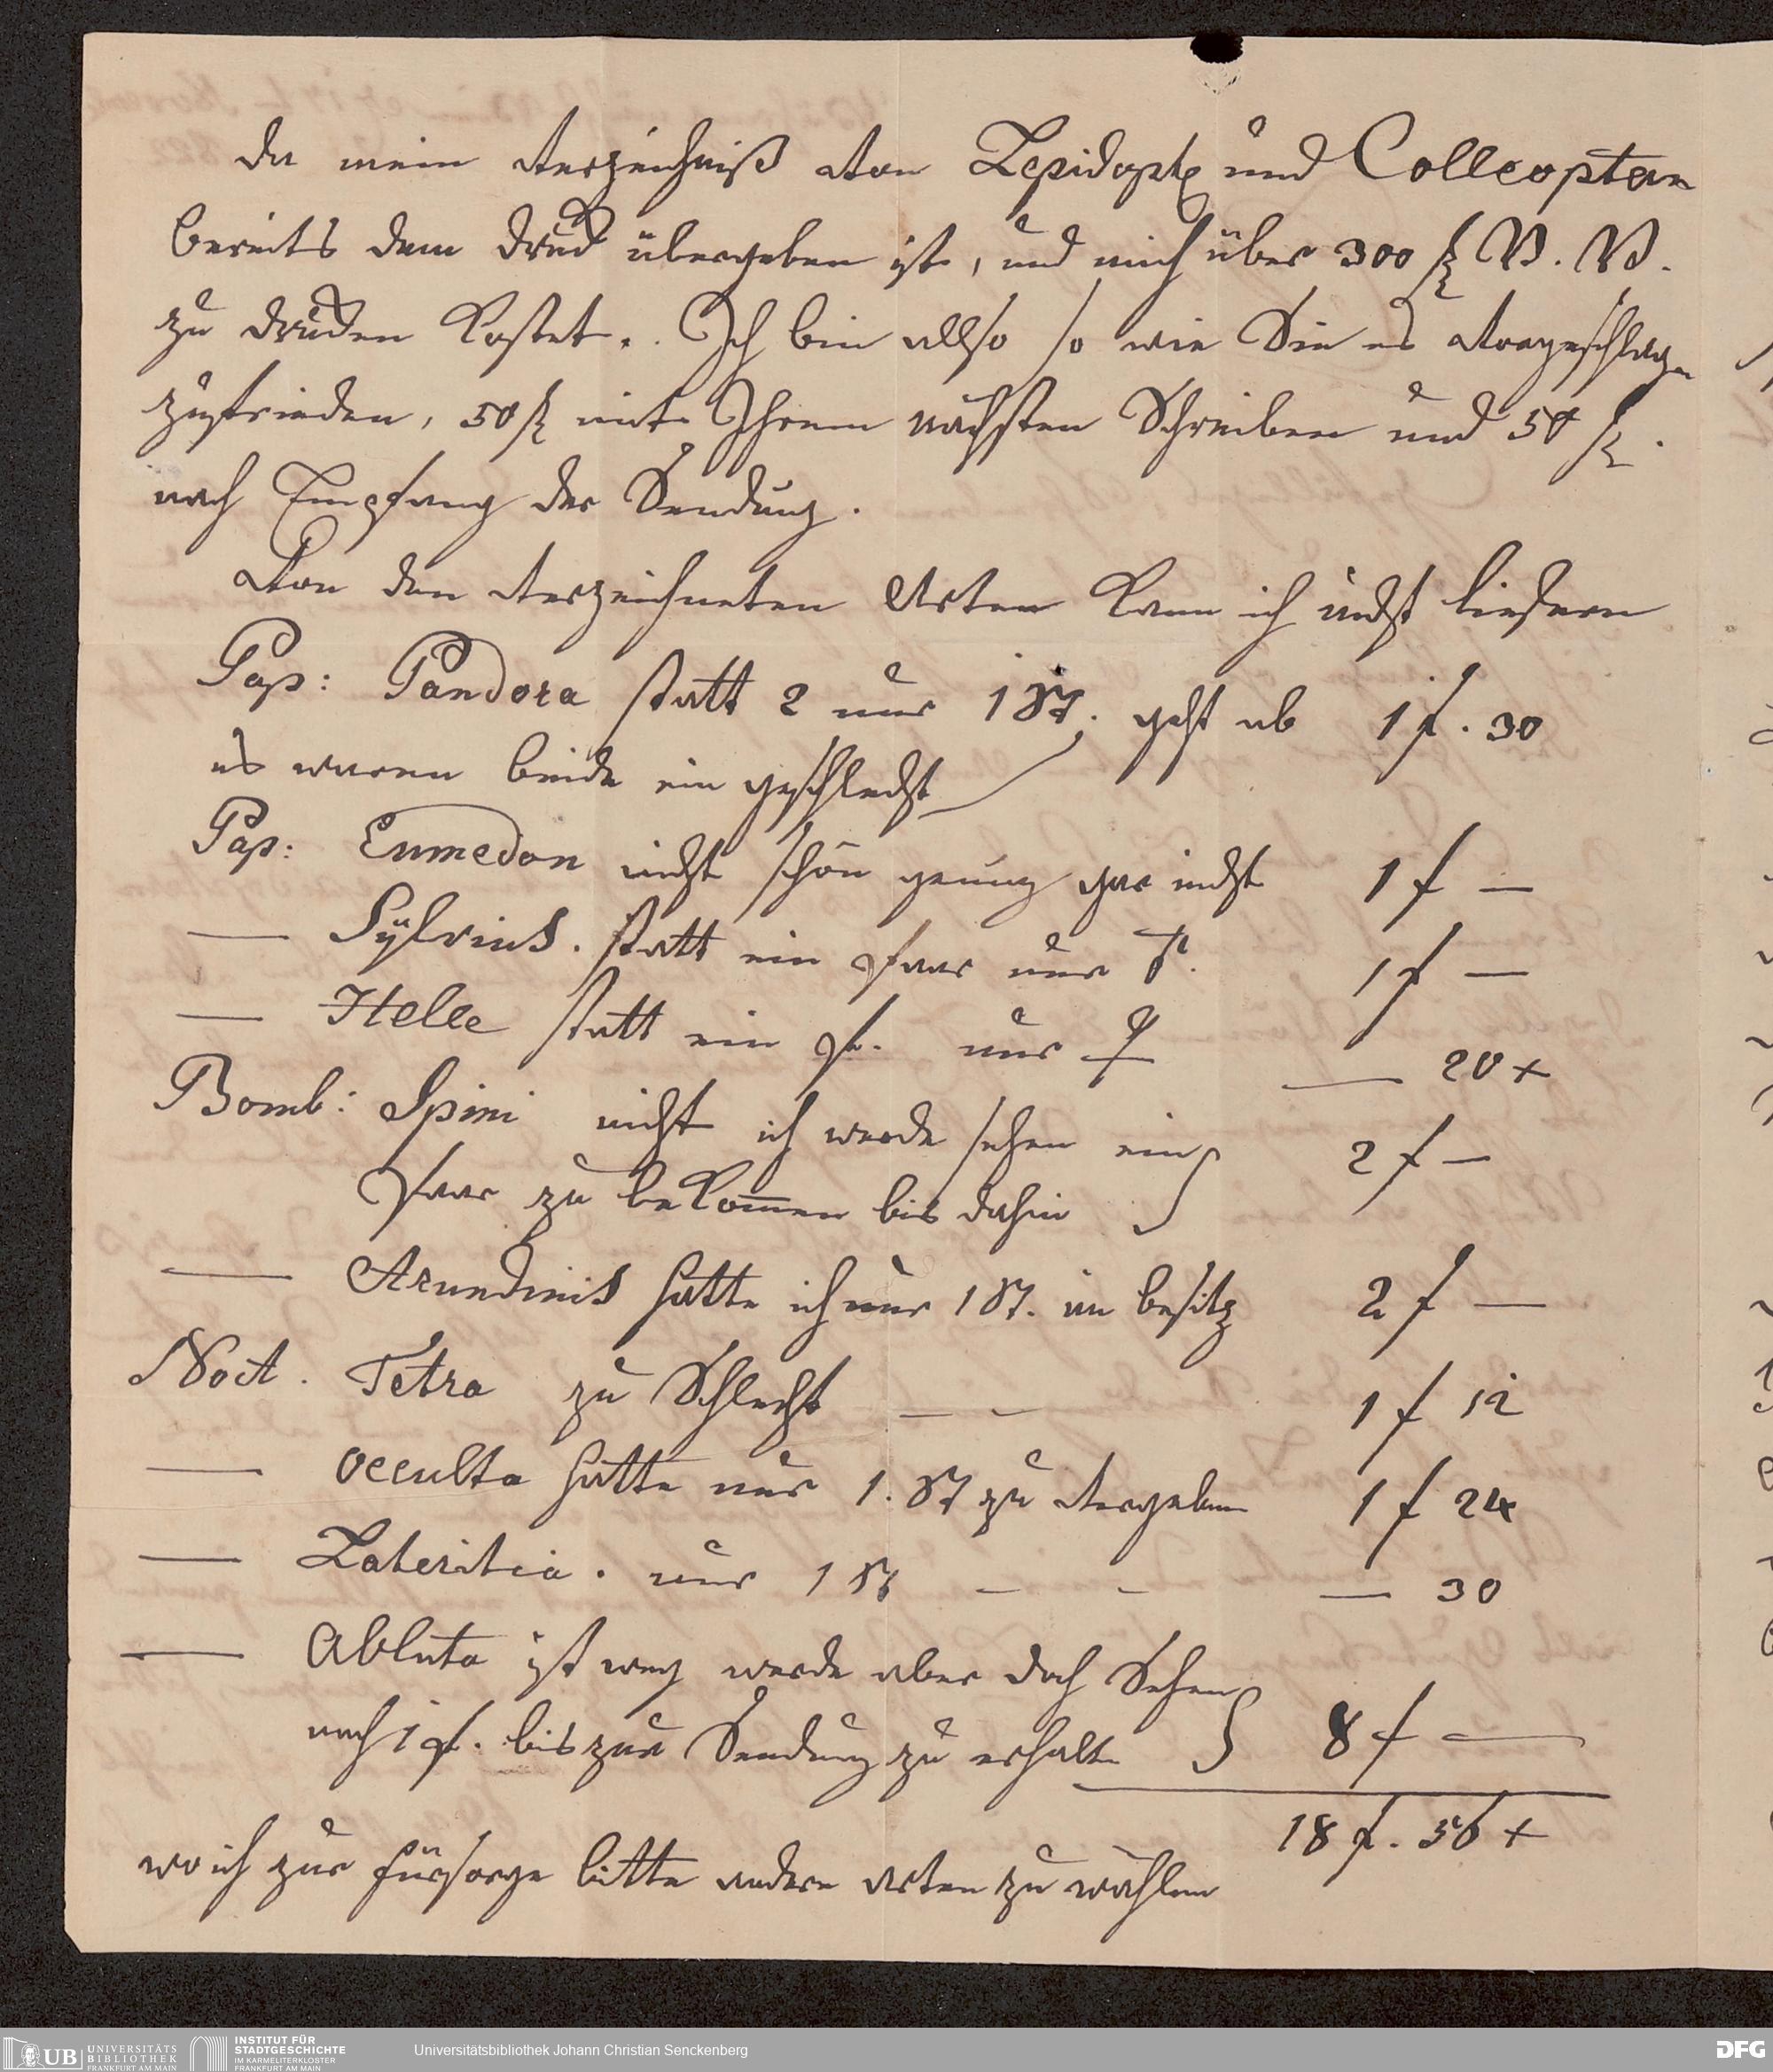 da mein Verzeichniß von Lepidopt und Colleoptern
bereits dem Druck übergeben ist, und mich über 300 f W. W.
zu drucken kostet. Ich bin allso so wie Sie es vorgeschlagen
zufrieden, 50 f mit Ihrem nächsten Schreiben und 50 f.
nach Empfang der Sendung.
Von den verzeichneten Arten kann ich nicht liefern
Pap: Pandora statt 2 nur 1 St. geht ab 1 f. 30
es waren beide ein geschlecht
Pap: Eumedon nicht schön genug gar nicht 1 f —
— Sylvius. statt ein Paar nur 1 f —
— Helle statt ein P. nur ♀ — 20 +
Bomb: Spini nicht ich werde sehen ein 2 f —
Paar zu bekom̅en bis dahin
— Arundinis hatte ich nur 1 St. im besitz 2 f —
Noct. Tetra zu Schlecht — — 1 f 12
— Occulta hatte nur 1. St zu vergeben 1 f 24
— Lateritia. nur 1 St — — — 30
— Abluta ist weg werde aber doch Sehen
noch 1 P. bis zur Sendung zu erhalten 8 f —
18 f. 56 +
wo ich zur fürsorge bitte andere Arten zu wählen
UB UNIVERSITÄTS BIBLIOTHEK FRANKFURT AM MAIN
INSTITUT FÜR STADTGESCHICHTE IM KARMELITERKLOSTER FRANKFURT AM MAIN
Universitätsbibliothek Johann Christian Senckenberg
DFG